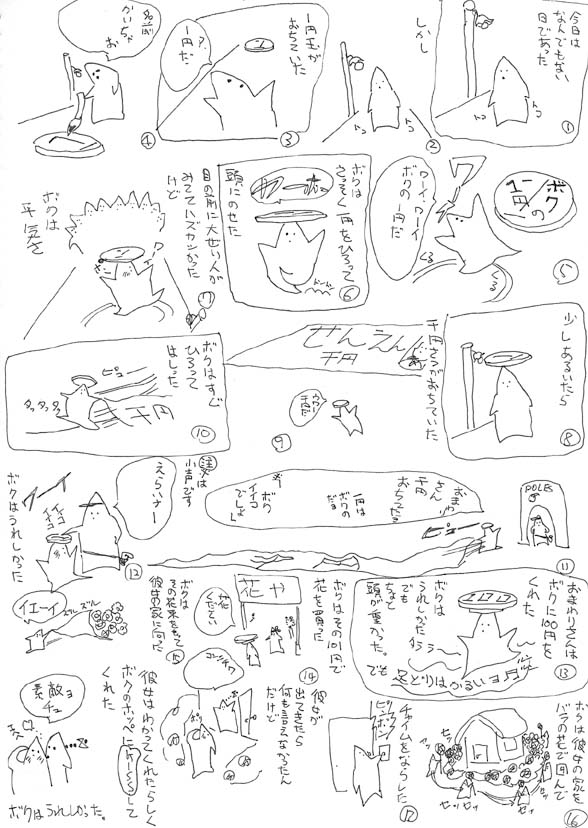 今日は
なんでもない
日であった
トコ
トコ
①
しかし
トコ
トコ
②
一円玉が
おちていた
?
一円だ
③
名前
かいちゃ
お
④
ボク
の
一円
ワーイ・ワーイ
ボクの一円だ
くる
くる
⑤
ボクは
さっそく一円をひろって
頭にのせた
⑥
目の前に大せい人が
みててハズカシかった
けど
ボクは
平気さ
少しあるいたら
⑧
千円さつがおちていた
せんえん
千円
ウワー
千円だ
⑨
ボクはすぐ
ひろって
はしった
ピュー
タッタッタッ
千円
⑩
POLES
おまわり
さん
千円
おちてた
一円は
ボクの
だよ
ボク
イイコ
でしょ
ピュー
⑪
注 は
小声です
えらいさー
イイコ
イイコ
ボクはうれしかった
⑫
おまわりさんは
ボクに100円を
くれた
ボクは
うれしかた
でも
おもくて
頭が重かった。でも
足どりはかるいヨ♪
⑬
ボクはその101円で
花を買た
花や
花
ください
⑭
ボクは
その花束をもって
彼女の家に向った
イエーイ
ズル ズル
⑮
ボクは彼女の家を
バラの花で囲んで
セッセッ
セッセッ
⑯
チャイムをならした
ピンポン
⑰
彼女が
出てきたら
何も言えなかたん
だけど
コンニチワ
彼女はわかってくれたらしく
ボクのホッペにKISSして
くれた
素敵ョ
チュ
ボクはうれしかった。